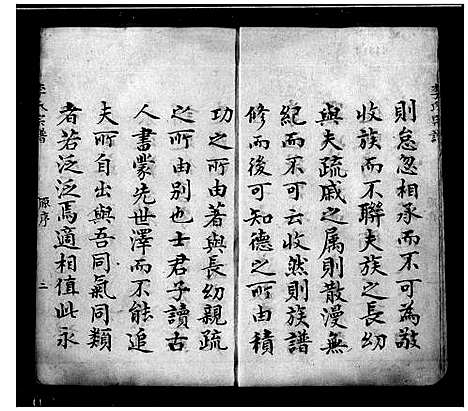 則怠忽相承而不可為敬
收族而不聯夫族之長幼
與夫疏戚之属則散漫無
紀而不可云收然則族譜
修而後可知德之所由積
功之所由著與長幼親疏
之所由别也士君子讀古
人書蒙先世澤而不能追
夫所自出與吾同氣同類
者若泛泛焉適相值此永
李氏宗譜
原序
二